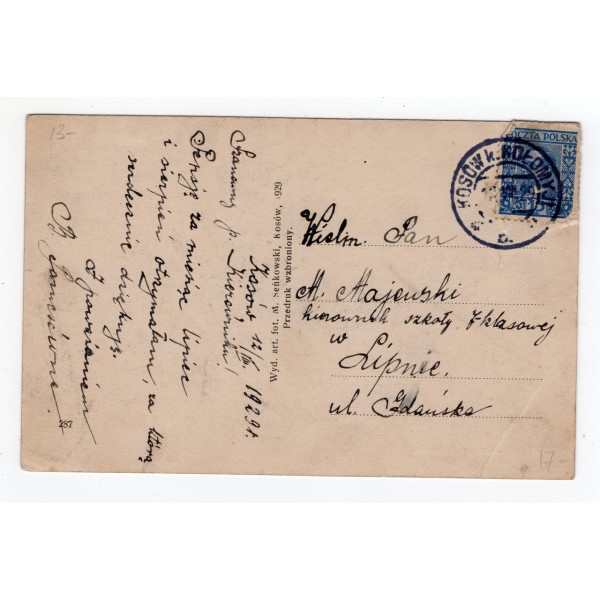 13-
Kosów 12/VIII 1929r.
Szanowny p. Kierowniku!
Pensję za miesiąc lipiec
i sierpień otrzymałam, za którą
serdecznie dziękuję.
Z poważaniem
B.
287
Wyd. art. fot. M. Seńkowski, Kosów, 1929
Przedruk wzbroniony.
POCZTA POLSKA
KOSÓW k. KOŁOMYJI
Wielm. Pan
M. Majewski
kierownik szkoły 7-klasowej
w
Lipnie.
ul. Gdańska
17-